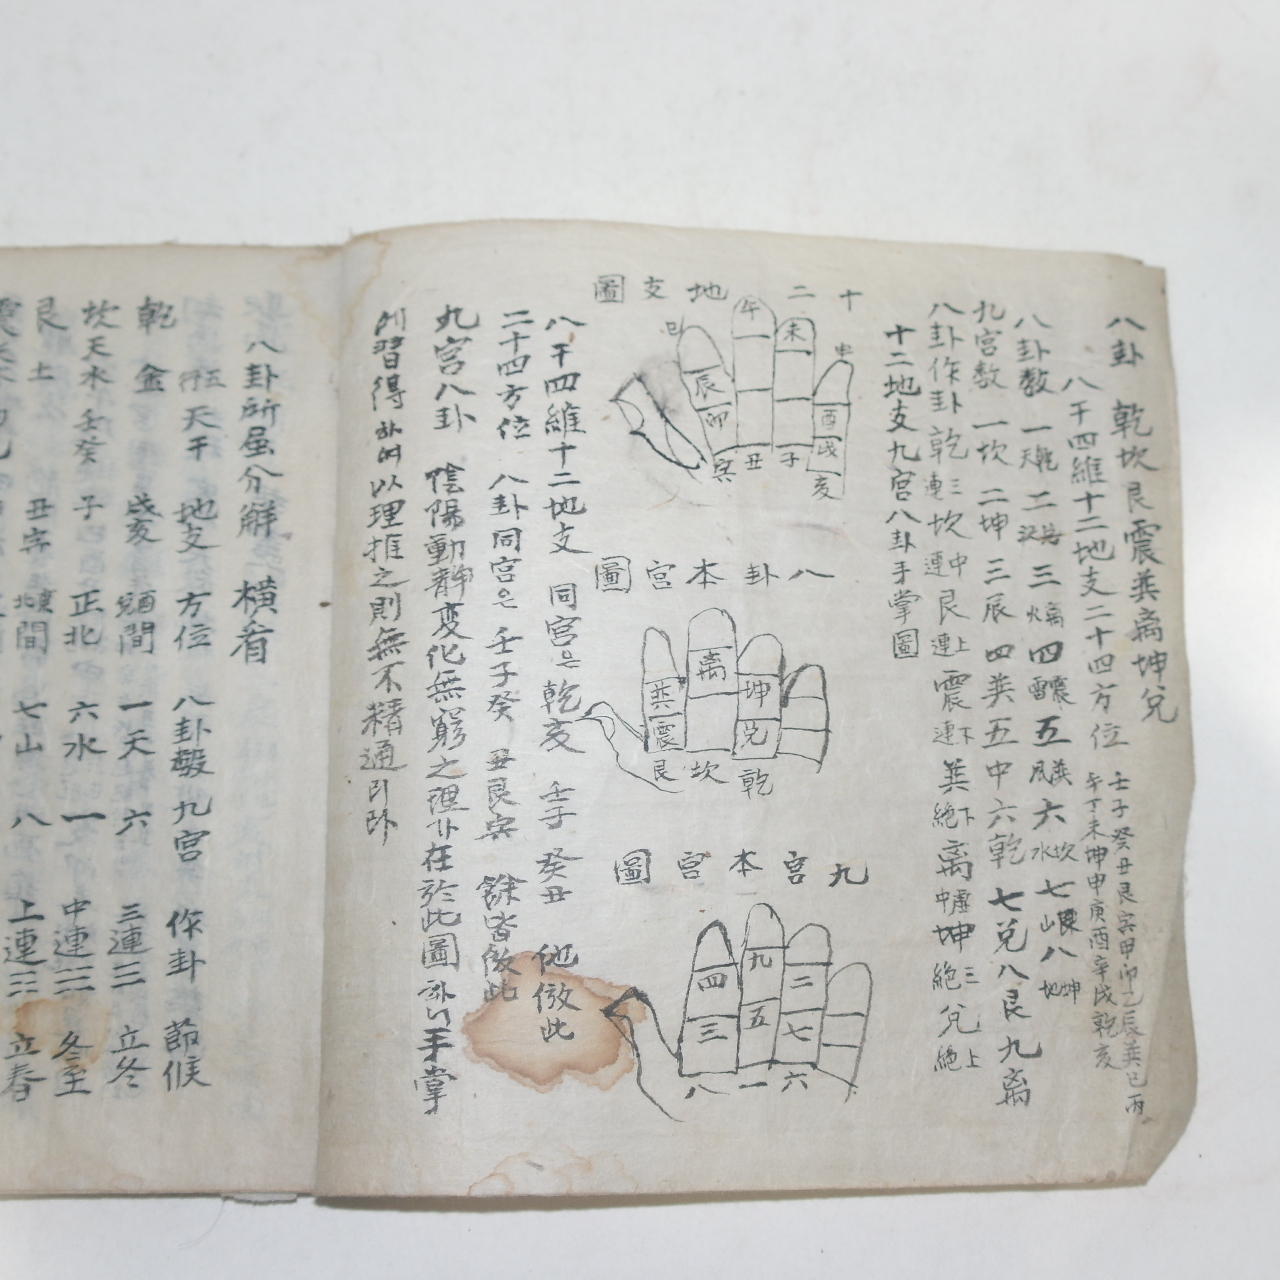 八卦 乾坎艮震巽离坤兌
八干四維十二地支二十四方位 壬子癸丑艮寅甲卯乙辰巽巳丙
午丁未坤申庚酉辛戌乾亥
八卦数 一天乾 二沢兌 三火离 四雷震 五風巽 六水坎 七山艮 八地坤
九宮数 一坎 二坤 三辰 四巽 五中 六乾 七兌 八艮 九离
八卦作卦 乾三連 坎中連 艮上連 震下連 巽下絕 离中虛 坤三絕 兌上絕
十二地支九宮八卦手掌圖
十二地支圖
巳 午 未 申
辰 酉
卯 戌
寅 丑 子 亥
八卦本宮圖
巽 离 坤
震 兌
艮 坎 乾
九宮本宮圖
四 九 二
三 五 七
八 一 六
八干四維十二地支 同宮은 乾亥 壬子 癸丑 他倣此
二十四方位 八卦同宮은 壬子癸 丑艮寅 餘皆倣此
九宮八卦 陰陽動靜変化無窮之理가在於此圖하니手掌
習得하여以理推之則無不精通
八卦所屬分解 橫看
五行 天干 地支 方位 八卦數 九宮 作卦 節候
乾 金 戌亥 酉間 一天 六 三連☰ 立冬
坎 水 壬癸 子 正北 六水 一 中連☵ 冬至
艮 土 丑寅 間 七山 八 上連☶ 立春